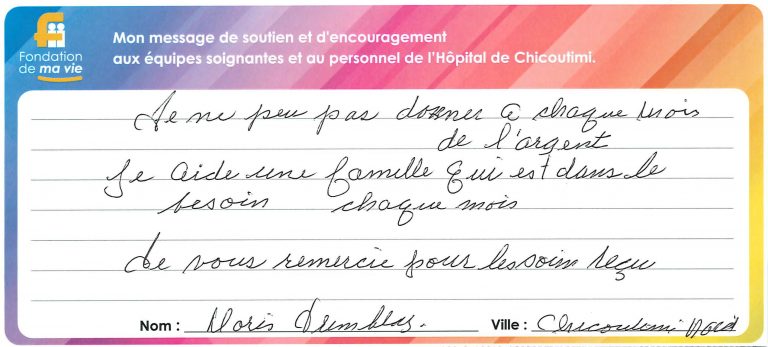 Fondation
de ma vie
Mon message de soutien et d'encouragement
aux équipes soignantes et au personnel de l'Hôpital de Chicoutimi.
Je ne peu pas donner a chaque mois
de l'argent
Je aide une famille qui est dans le
besoin chaque mois
Je vous remercie pour les soin reçu
Nom : Doris Tremblay. Ville : Chicoutimi Nord